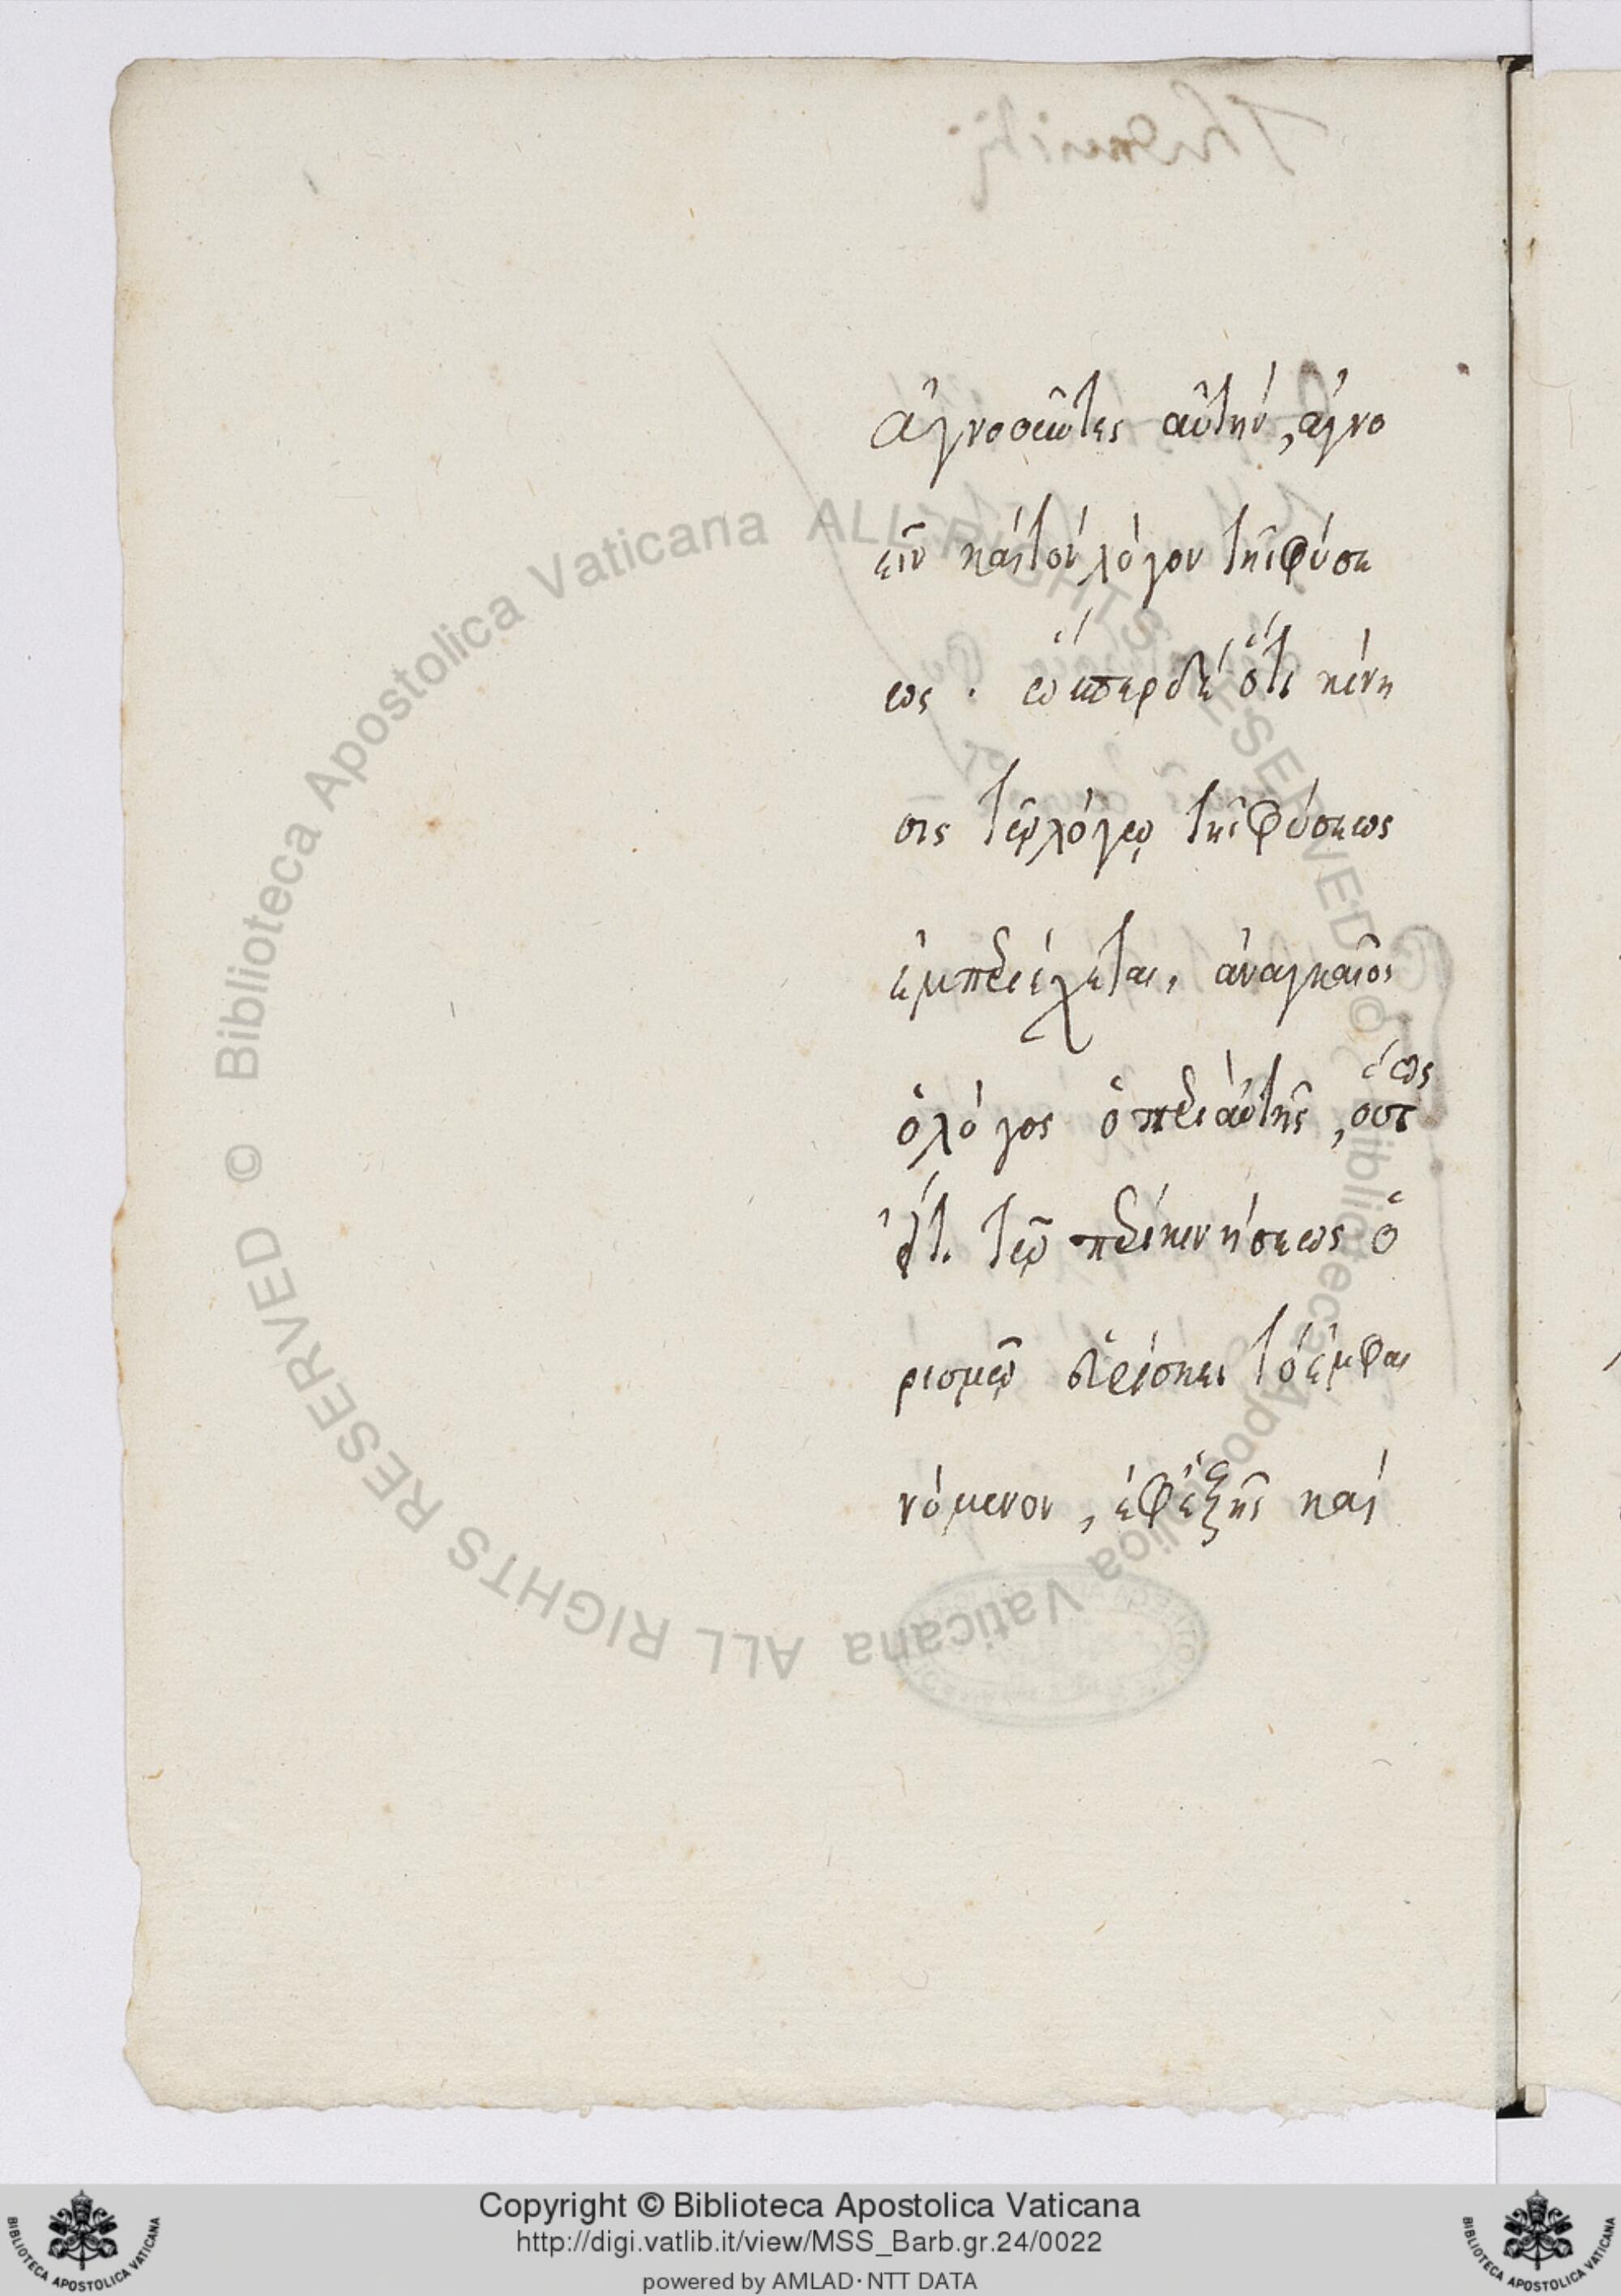 ἀγνοοῦντες αὐτὴν, ἀγνο
εῖν καὶ τὸν λόγον τῆς φύσε
ως . ὥσπερ δὲ ὅτι κίνη
σις τῷ λόγῳ τῆς φύσεως
ἐμπεριέχεται, ἀναγκαῖος
ὁ λόγος ὁ περὶ αὐτῆς, οὕτως
ὅτι τῷ περὶ κινήσεως ὁ
ρισμῷ εὑρίσκει τὸ ἐμφαι
νόμενον, ἐφεξῆς καὶ
Copyright © Biblioteca Apostolica Vaticana
http://digi.vatlib.it/view/MSS_Barb.gr.24/0022
powered by AMLAD · NTT DATA
BIBLIOTECA APOSTOLICA VATICANA
BIBLIOTECA APOSTOLICA VATICANA
© Biblioteca Apostolica Vaticana ALL RIGHTS RESERVED © Biblioteca Apostolica Vaticana ALL RIGHTS RESERVED